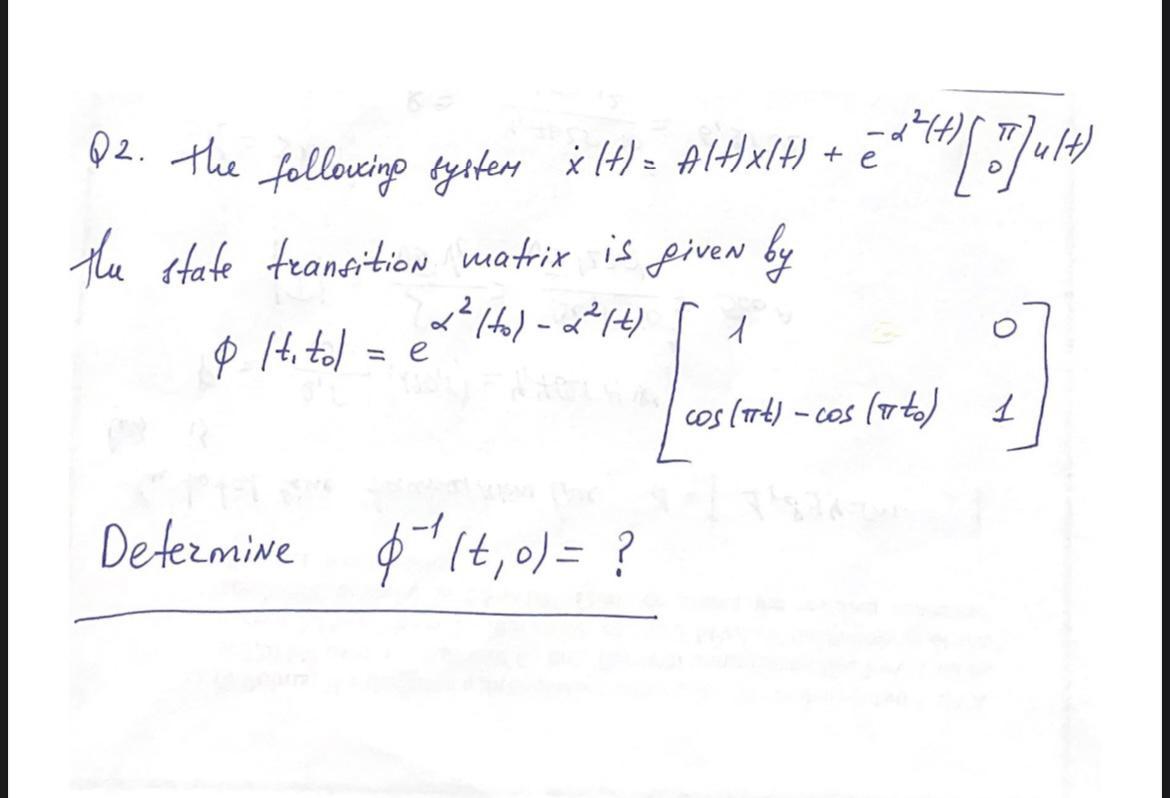 Q2. The following system ẋ(t) = A(t)x(t) + e^{-α²(t)} [π 0] u(t)
the state transition matrix is given by
ϕ(t, t₀) = e^{α²(t₀) - α²(t)} [1 0
cos(πt) - cos(πt₀) 1]
Determine ϕ⁻¹(t, 0) = ?